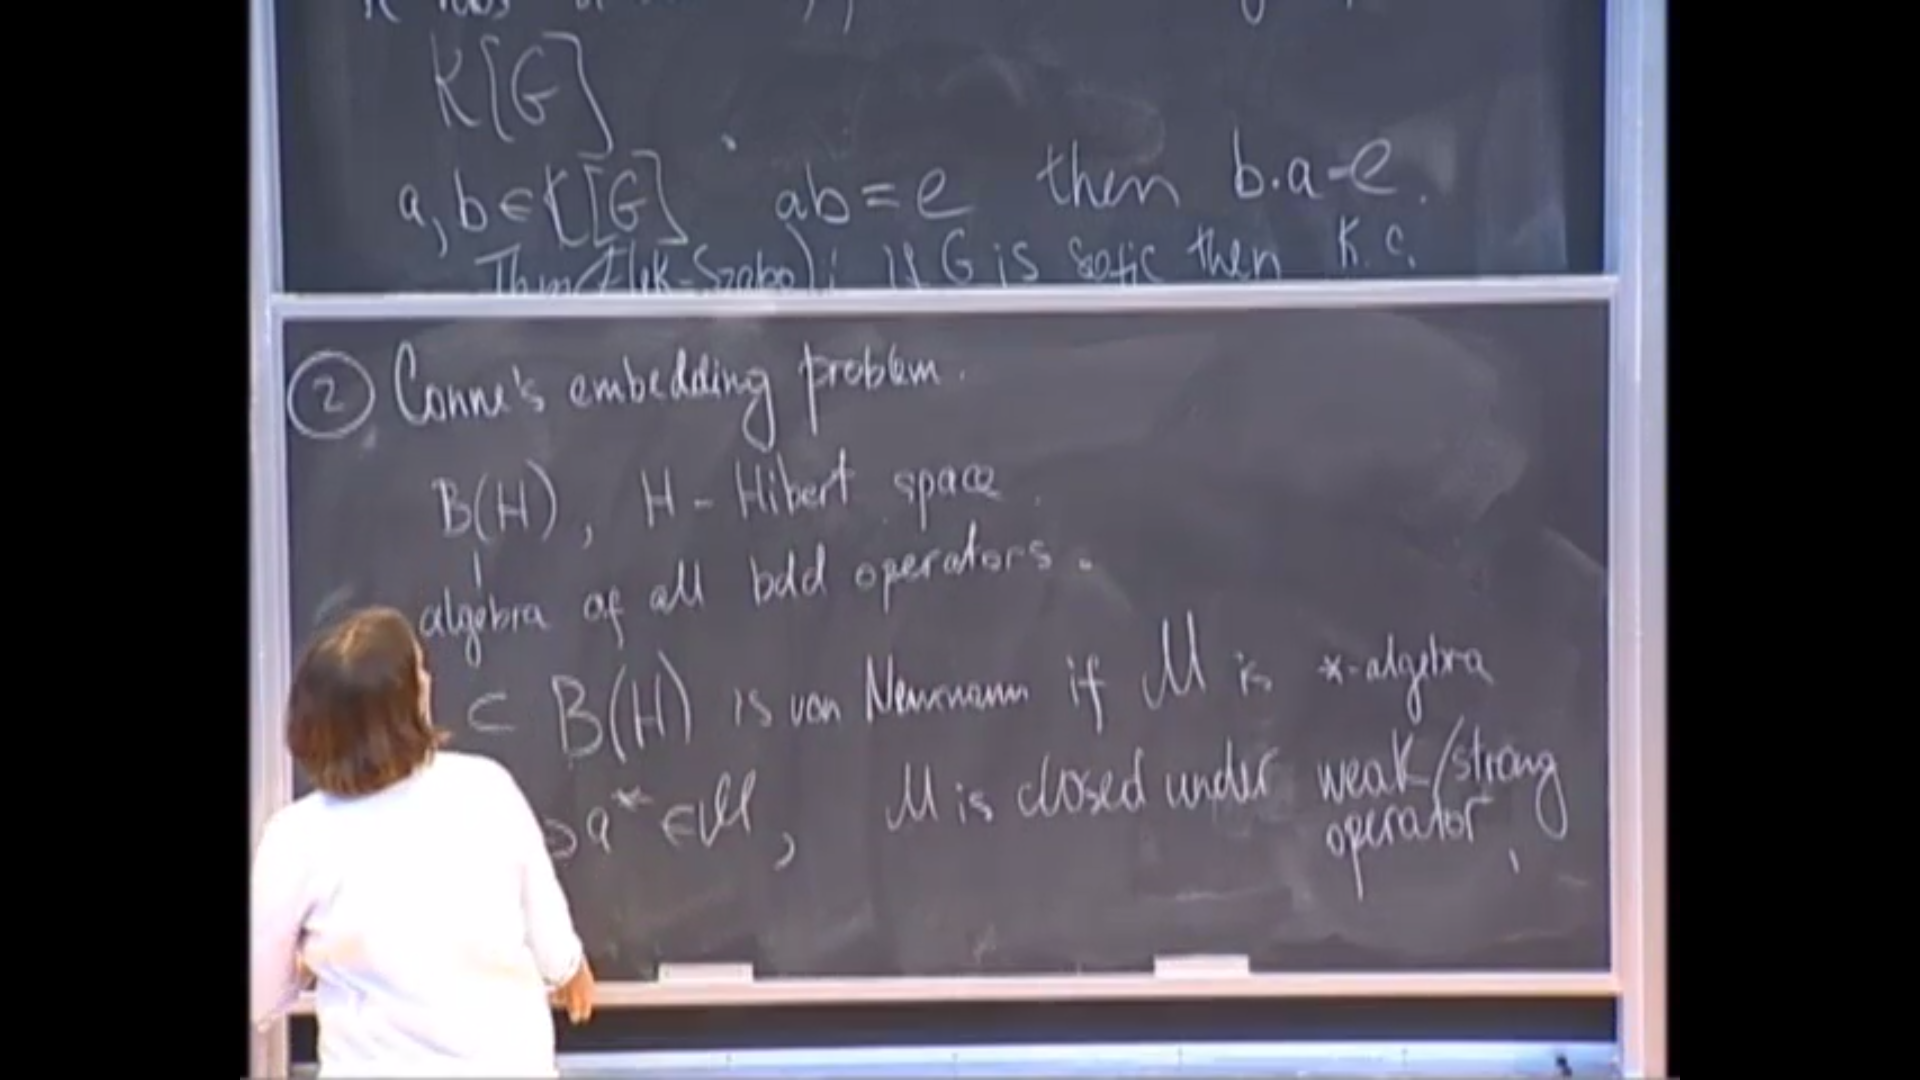 K[G]
a, b ∈ K[G] ab = e then b.a = e.
Thm (Elek-Szabo): if G is sofic then K.C.
② Conne's embedding problem.
B(H), H - Hibert space.
algebra of all bdd operators.
⊂ B(H) is von Neumann if M is *-algebra
a* ∈ M, M is closed under weak/strong
operator